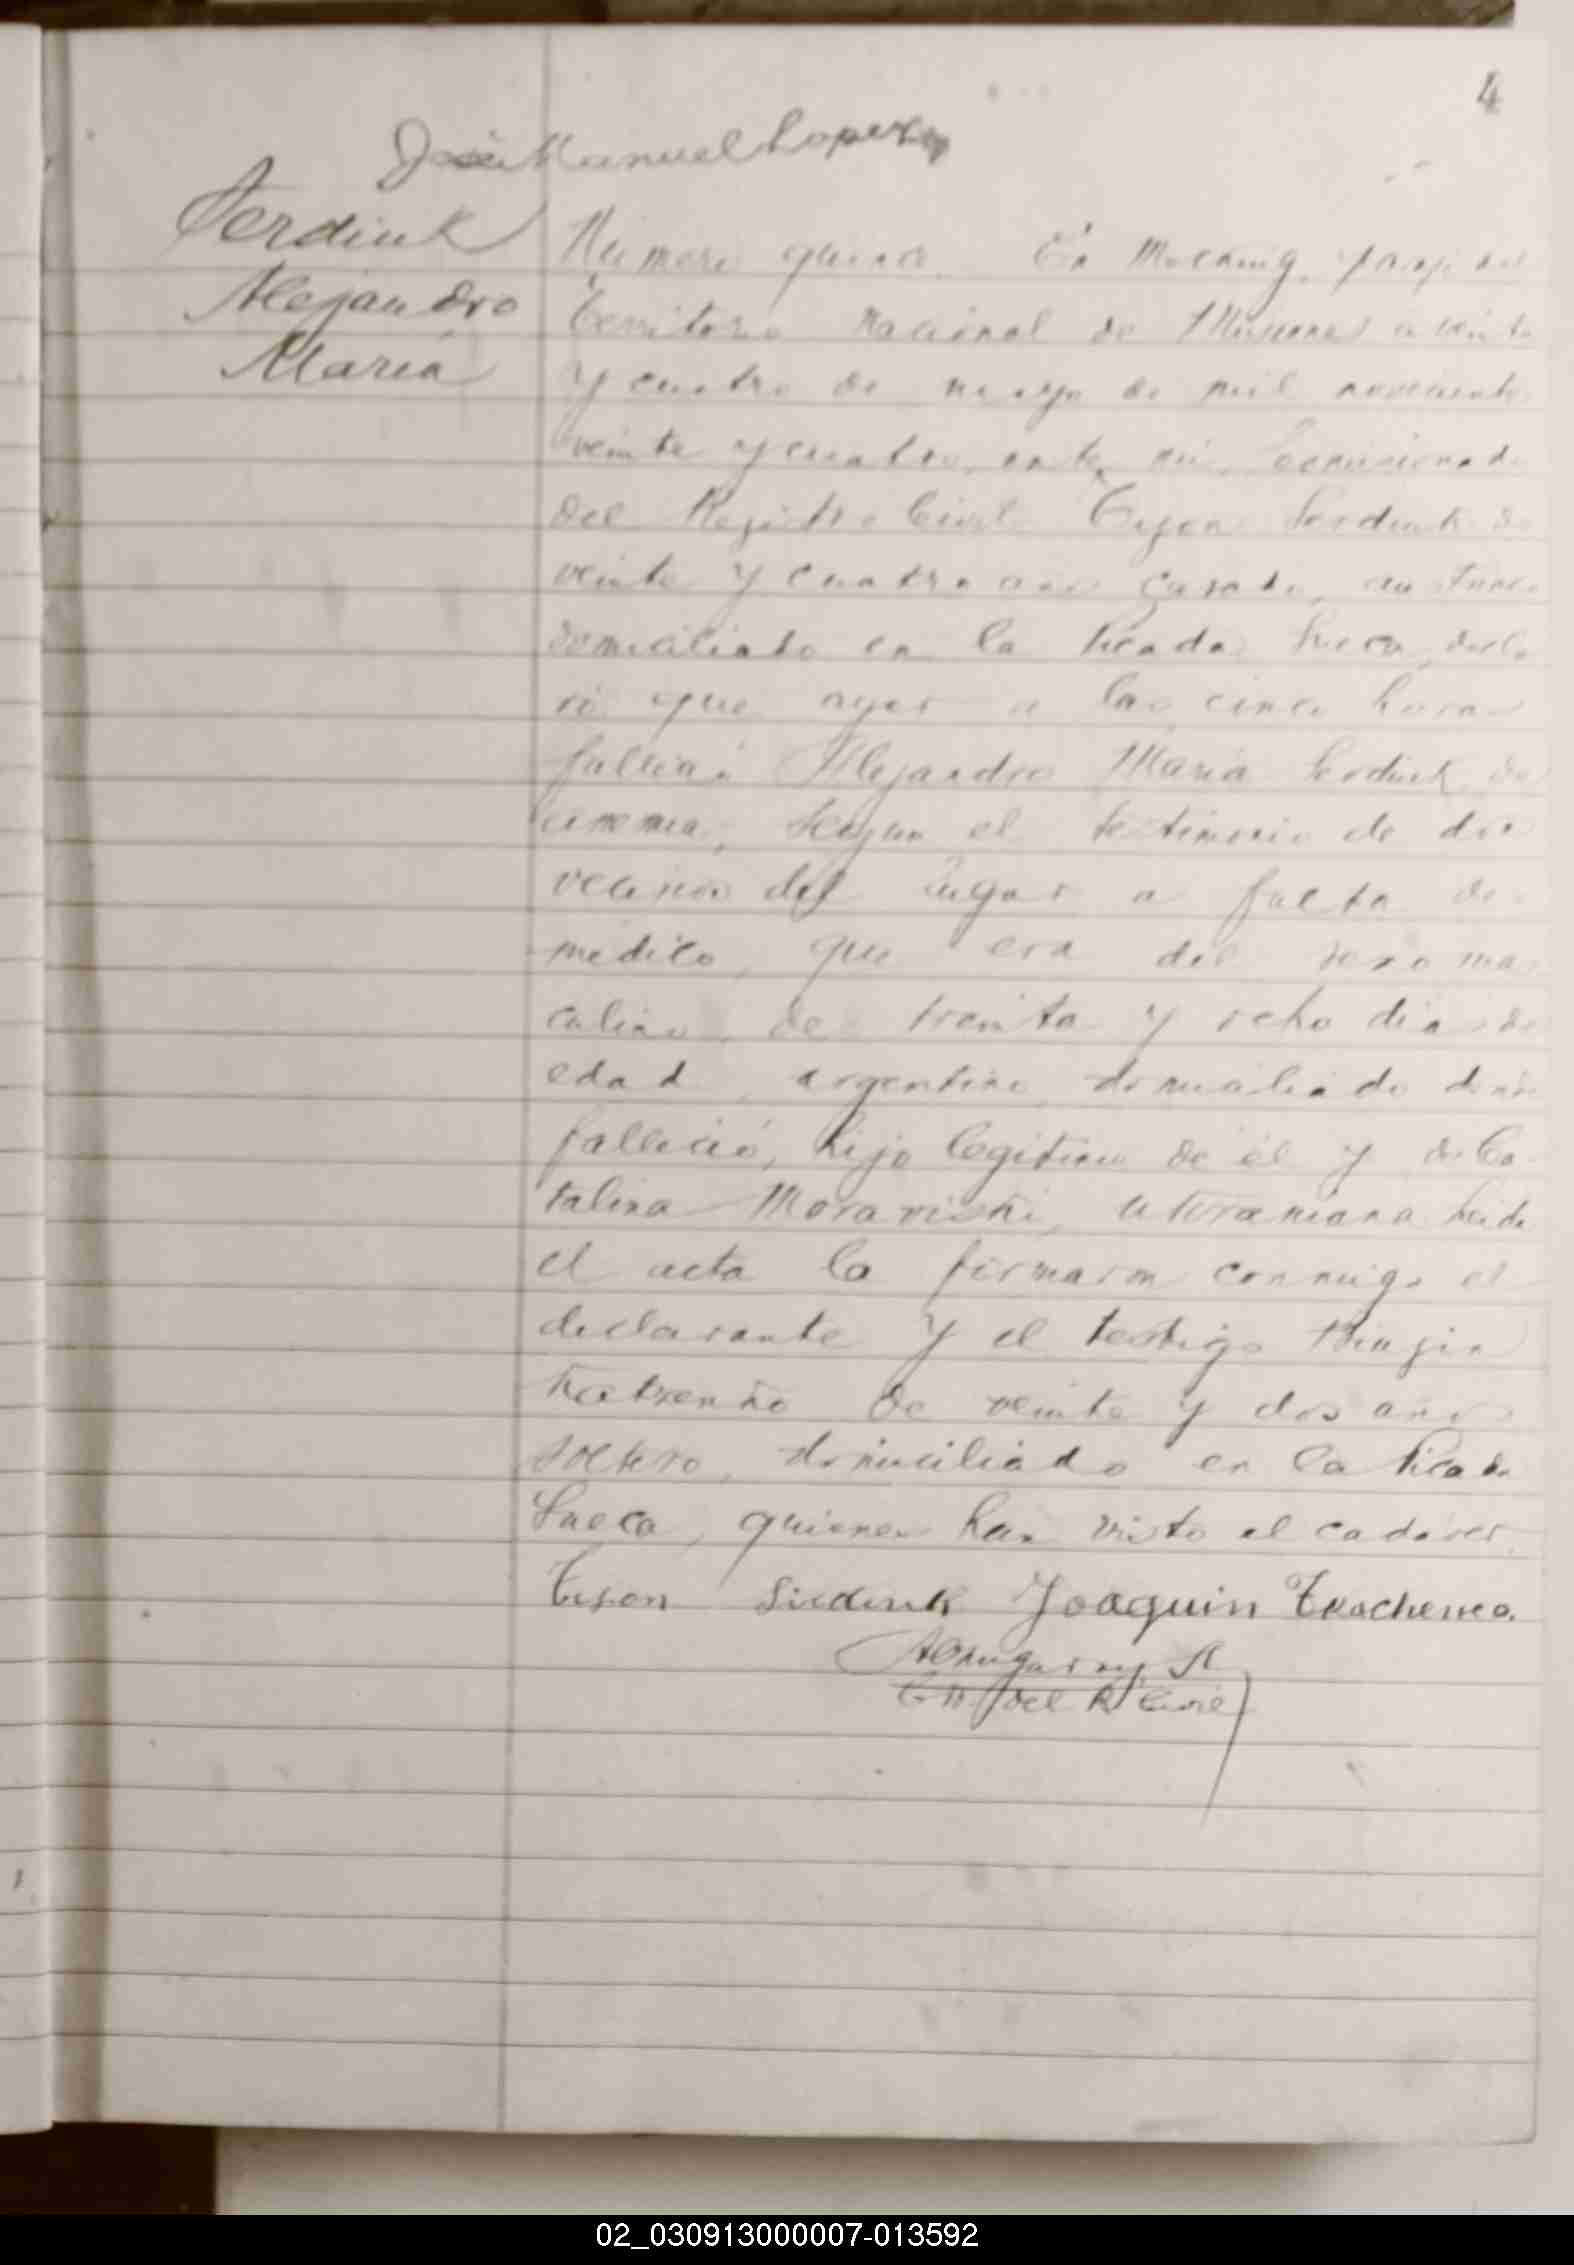 4
José Manuel Lopez
Serdiuk
Alejandro
María
Número quince. En Mecking, paraje del
Territorio Nacional de Misiones a veinte
y cuatro de mayo de mil novecientos
veinte y cuatro, ante mi, Comisionado
del Registro Civil Serdiuk de
veinte y cuatro años casado,
domiciliado en la Picada Sueca, decla
ró que ayer a las cinco horas
falleció Alejandro María Serdiuk de
anemia, según el testimonio de dos
vecinos del lugar a falta de
médico, que era del sexo mas
culino, de treinta y ocho dias de
edad, argentino domiciliado donde
falleció, hijo legitimo de él y de Ca
talina Moraviski, ukraniana Leida
el acta la firmaron conmigo el
declarante y el testigo
de veinte y dos años
soltero, domiciliado en la Picada
Sueca, quienes han visto el cadaver.
Joaquin Tkachenco.
del R. Civil
02_030913000007-013592